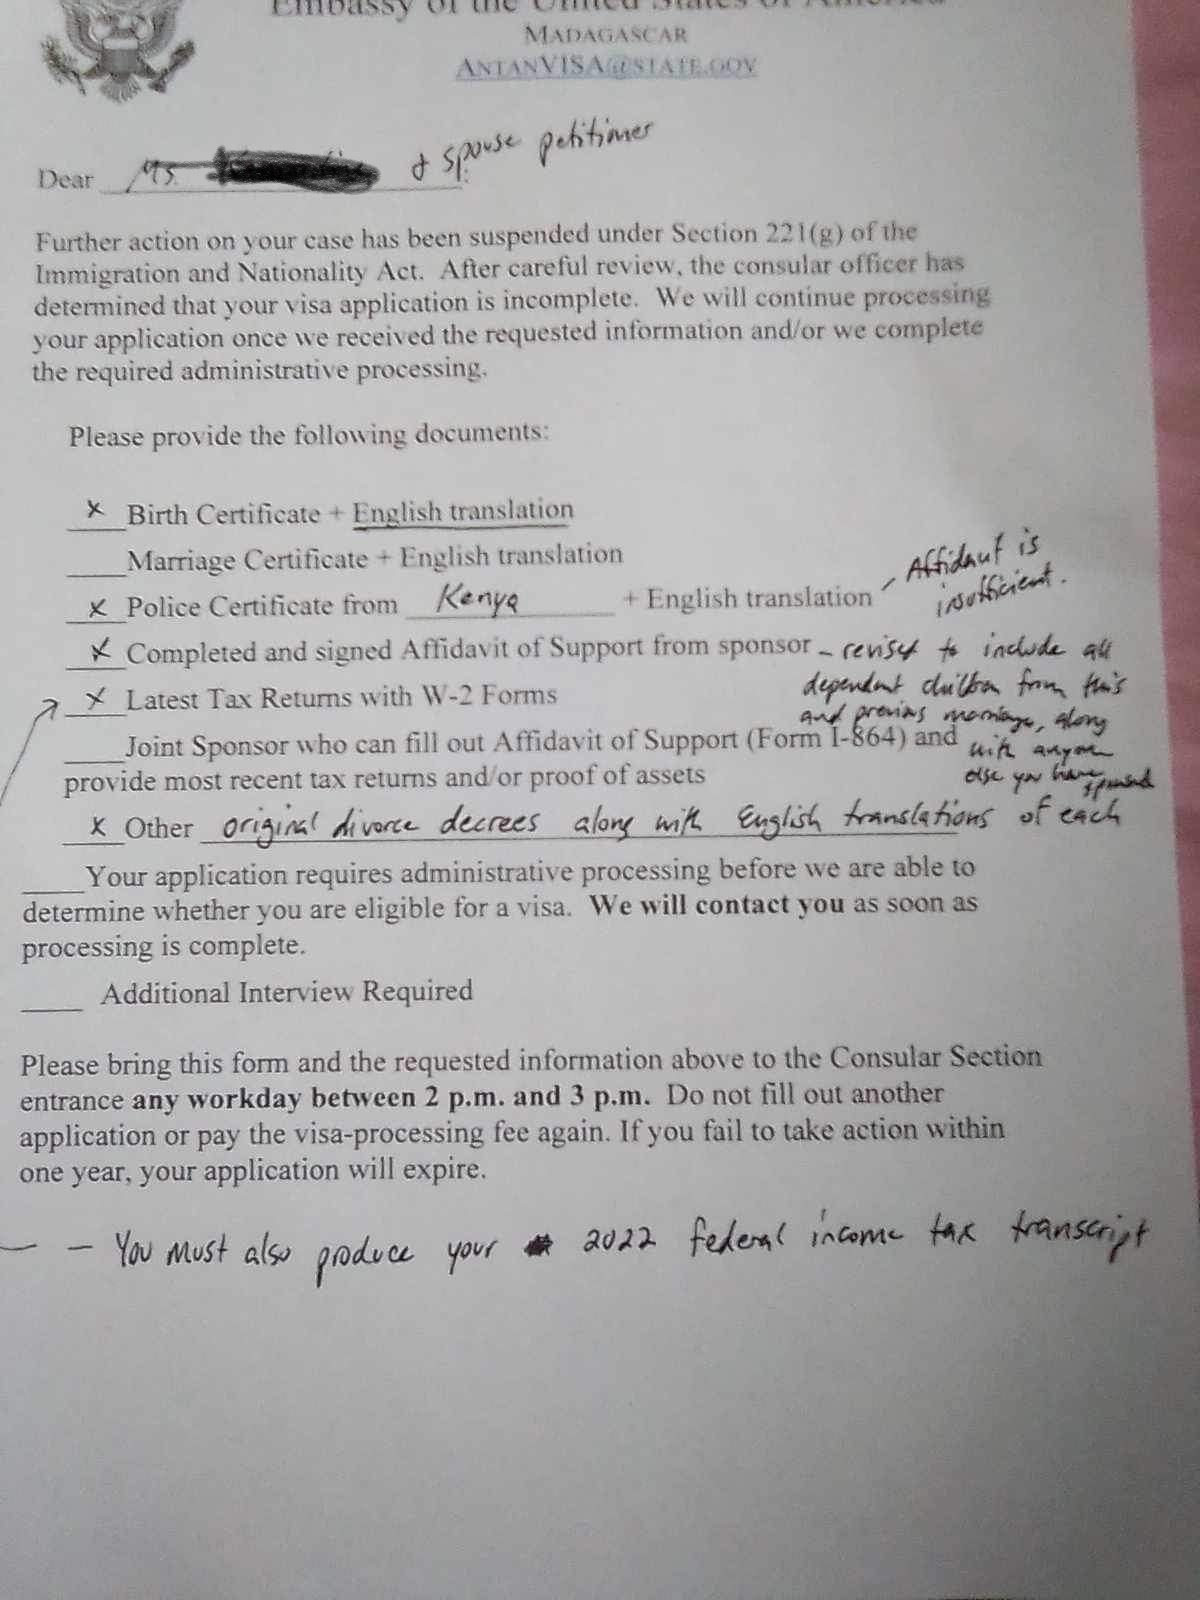 Embassy of the United States of America
MADAGASCAR
ANTANVISA@STATE.GOV
Dear Ms. & spouse petitioner
Further action on your case has been suspended under Section 221(g) of the
Immigration and Nationality Act. After careful review, the consular officer has
determined that your visa application is incomplete. We will continue processing
your application once we received the requested information and/or we complete
the required administrative processing.
Please provide the following documents:
x Birth Certificate + English translation
Marriage Certificate + English translation
x Police Certificate from Kenya + English translation - Affidavit is
insufficient.
x Completed and signed Affidavit of Support from sponsor - revised to include all
dependent children from this
and previous marriage, along
with anyone
else you have sponsored
x Latest Tax Returns with W-2 Forms
Joint Sponsor who can fill out Affidavit of Support (Form I-864) and
provide most recent tax returns and/or proof of assets
x Other original divorce decrees along with English translations of each
Your application requires administrative processing before we are able to
determine whether you are eligible for a visa. We will contact you as soon as
processing is complete.
Additional Interview Required
Please bring this form and the requested information above to the Consular Section
entrance any workday between 2 p.m. and 3 p.m. Do not fill out another
application or pay the visa-processing fee again. If you fail to take action within
one year, your application will expire.
- You must also produce your 2022 federal income tax transcript